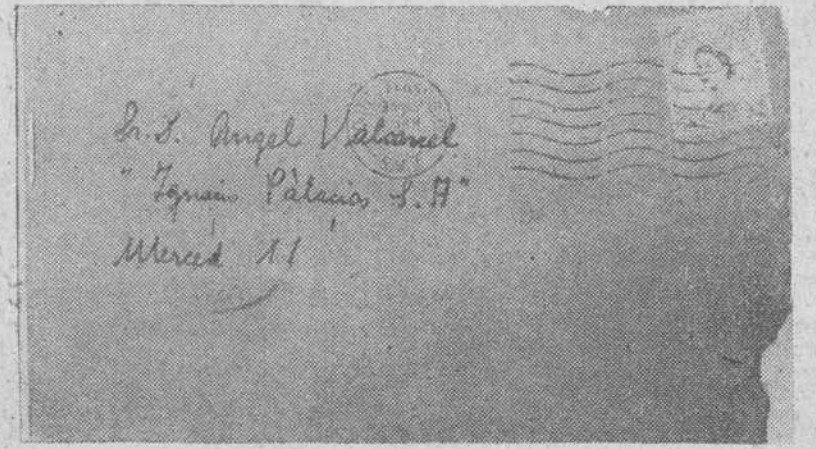 Sr. D. Angel Valcarcel
"Ignacio Palacios S. A"
Merced 11